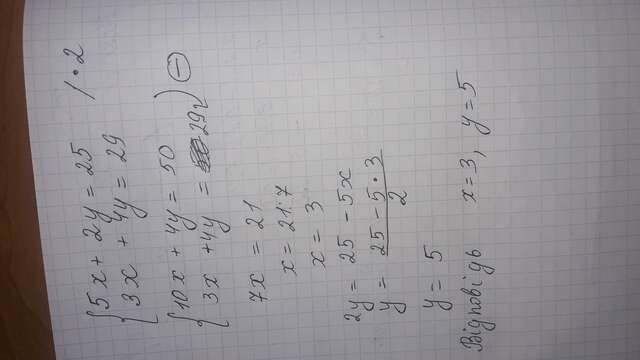 {5x + 2y = 25 / • 2
3x + 4y = 29
{10x + 4y = 50
3x + 4y = 29 ) ⊖
7x = 21
x = 21:7
x = 3
2y = 25 - 5x
y = (25 - 5 • 3)/2
y = 5
Відповідь x = 3, y = 5